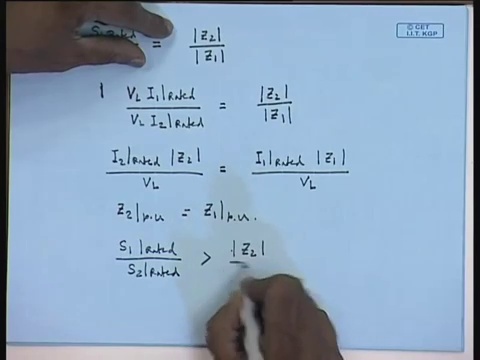 © CET
I.I.T. KGP
= |Z2| / |Z1|
VL I1|Rated / VL I2|Rated = |Z2| / |Z1|
I2|Rated |Z2| / VL = I1|Rated |Z1| / VL
Z2|p.u = Z1|p.u.
S1|Rated / S2|Rated > |Z2|